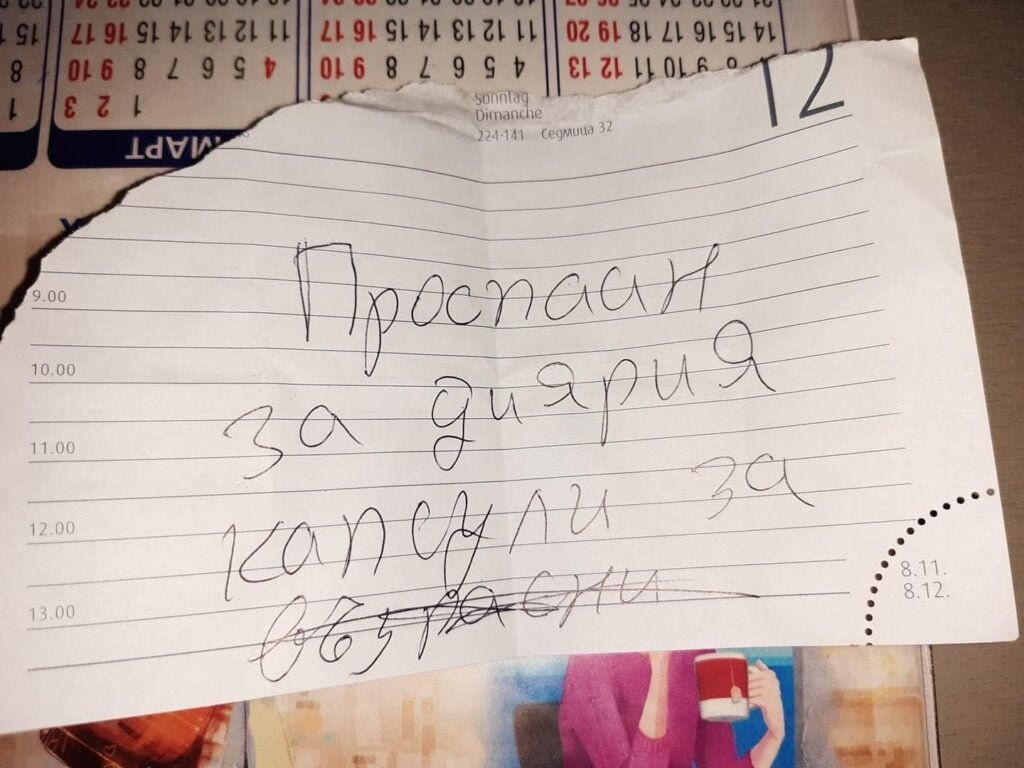 Sonntag
Dimanche
12
224-141 Седмица 32
9.00
Проспаан
10.00
за диярия
11.00
капсули за
12.00
възрасни
13.00
8.11.
8.12.
МАРТ
1 2 3
4 5 6 7 8 9 10
11 12 13 14 15 16 17
4 5 6 7 8 9 10
11 12 13 14 15 16 17
8 9 10 11 12 13
14 15 16 17 18 19 20